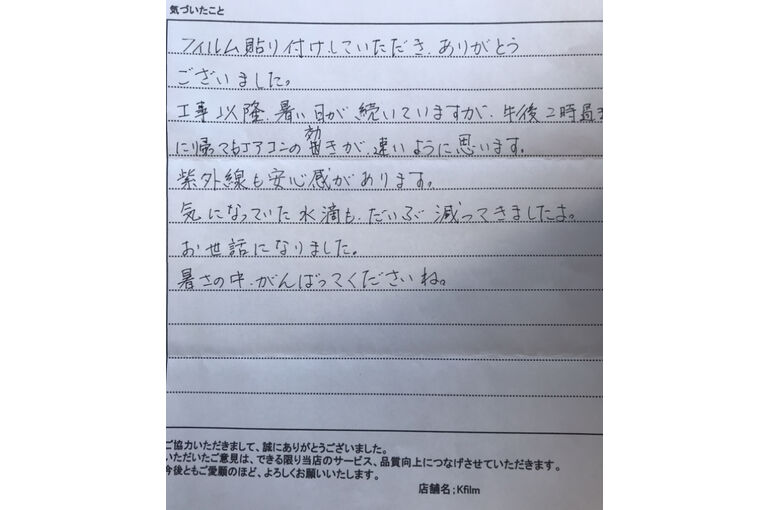 気づいたこと
フィルム貼り付けしていただき、ありがとう
ございました。
工事以降、暑い日が続いていますが、午後2時過ぎ
に帰ってもエアコンの効きが、速いように思います。
紫外線も安心感があります。
気になっていた水滴も、だいぶ減ってきましたよ。
お世話になりました。
暑さの中、がんばってくださいね。
ご協力いただきまして、誠にありがとうございました。
いただいたご意見は、できる限り当店のサービス、品質向上につなげさせていただきます。
今後ともご愛願のほど、よろしくお願いいたします。
店舗名;Kfilm